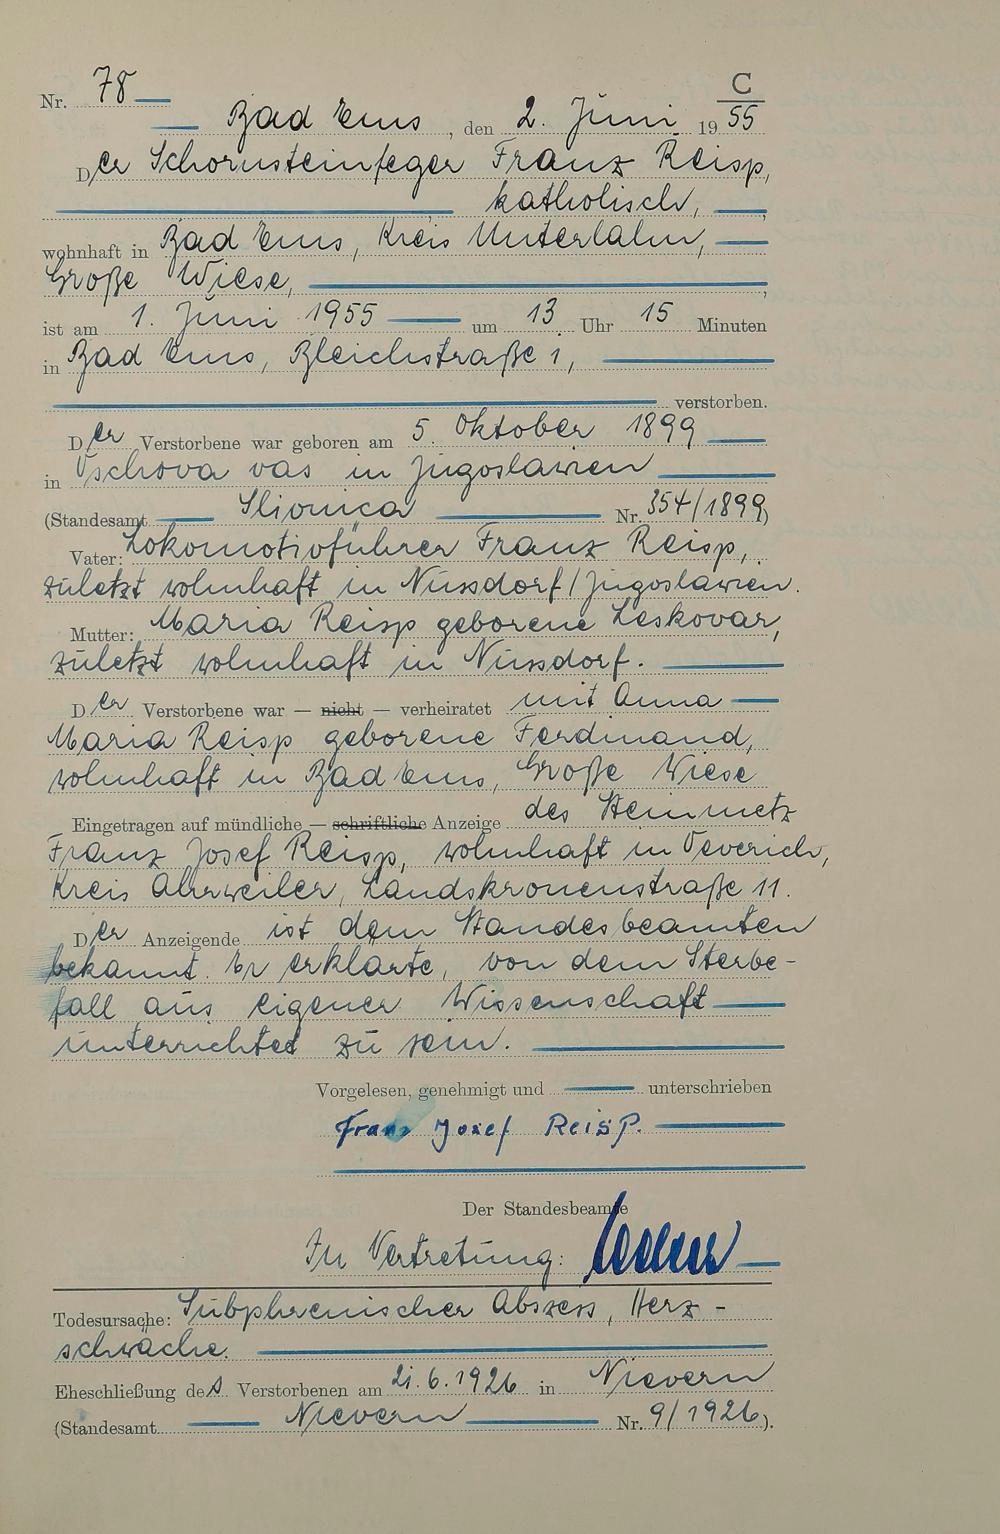 Nr. 78
C
Bad Ems, den 2. Juni 1955
Der Schornsteinfeger Franz Reisp,
katholisch,
wohnhaft in Bad Ems, Kreis Unterlahn,
Große Wiese,
ist am 1. Juni 1955 um 13 Uhr 15 Minuten
in Bad Ems, Bleichstraße 1,
verstorben.
Der Verstorbene war geboren am 5. Oktober 1899
in vas in Jugoslawien
(Standesamt Slivnica Nr. 354/1899)
Vater: Lokomotivführer Franz Reisp,
zuletzt wohnhaft in Nussdorf/Jugoslawien.
Mutter: Maria Reisp geborene Leskovar,
zuletzt wohnhaft in Nussdorf.
Der Verstorbene war — nicht — verheiratet mit Anna
Maria Reisp geborene Ferdinand,
wohnhaft in Bad Ems, Große Wiese
Eingetragen auf mündliche — schriftliche Anzeige des Steinmetz
Franz Josef Reisp, wohnhaft in
Kreis Ahrweiler, Landskronenstraße 11.
Der Anzeigende ist dem Standesbeamten
bekannt. Er erklärte, von dem Sterbe-
fall aus eigener Wissenschaft
unterrichtet zu sein.
Vorgelesen, genehmigt und unterschrieben
Franz Josef Reisp.
Der Standesbeamte
In Vertretung:
Todesursache: Subphrenischer Abszess, Herz-
schwäche.
Eheschließung des Verstorbenen am 21.6.1926 in Nievern
(Standesamt Nievern Nr. 9/1926).